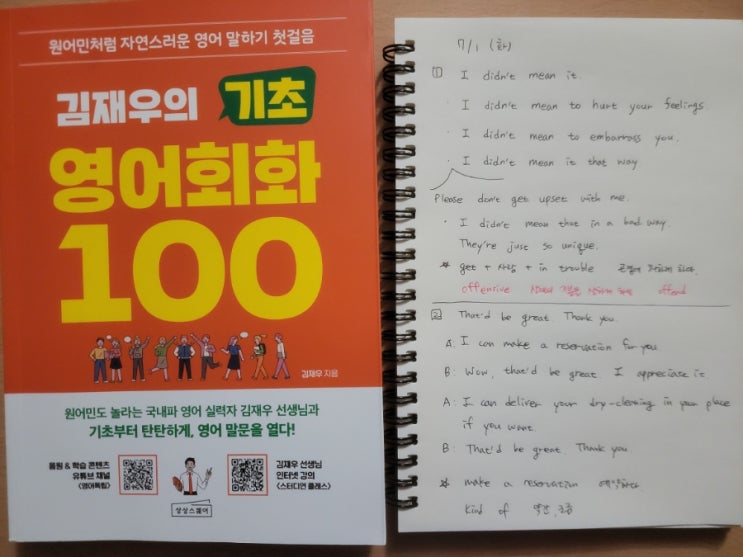 원어민처럼 자연스러운 영어 말하기 첫걸음
김재우의 기초
영어회화
100
김재우 지음
원어민도 놀라는 국내파 영어 실력자 김재우 선생님과
기초부터 탄탄하게, 영어 말문을 열다!
음원 & 학습 콘텐츠
유튜브 채널
<영어독립>
김재우 선생님
인터넷 강의
<스터디언 클래스>
상상스퀘어
7/1 (화)
1 I didn't mean it.
· I didn't mean to hurt your feelings.
· I didn't mean to embarrass you.
· I didn't mean it that way
Please don't get upset with me.
· I didn't mean that in a bad way.
They're just so unique.
* get + 사람 + in trouble 곤경에 처하게 하다.
offensive 상대의 기분을 상하게 하는 offend
2 That'd be great. Thank you.
A: I can make a reservation for you.
B: Wow, that'd be great. I appreciate it.
A: I can deliver your dry-cleaning in your place
if you want.
B: That'd be great. Thank you
* make a reservation 예약하다
kind of 약간, 조금